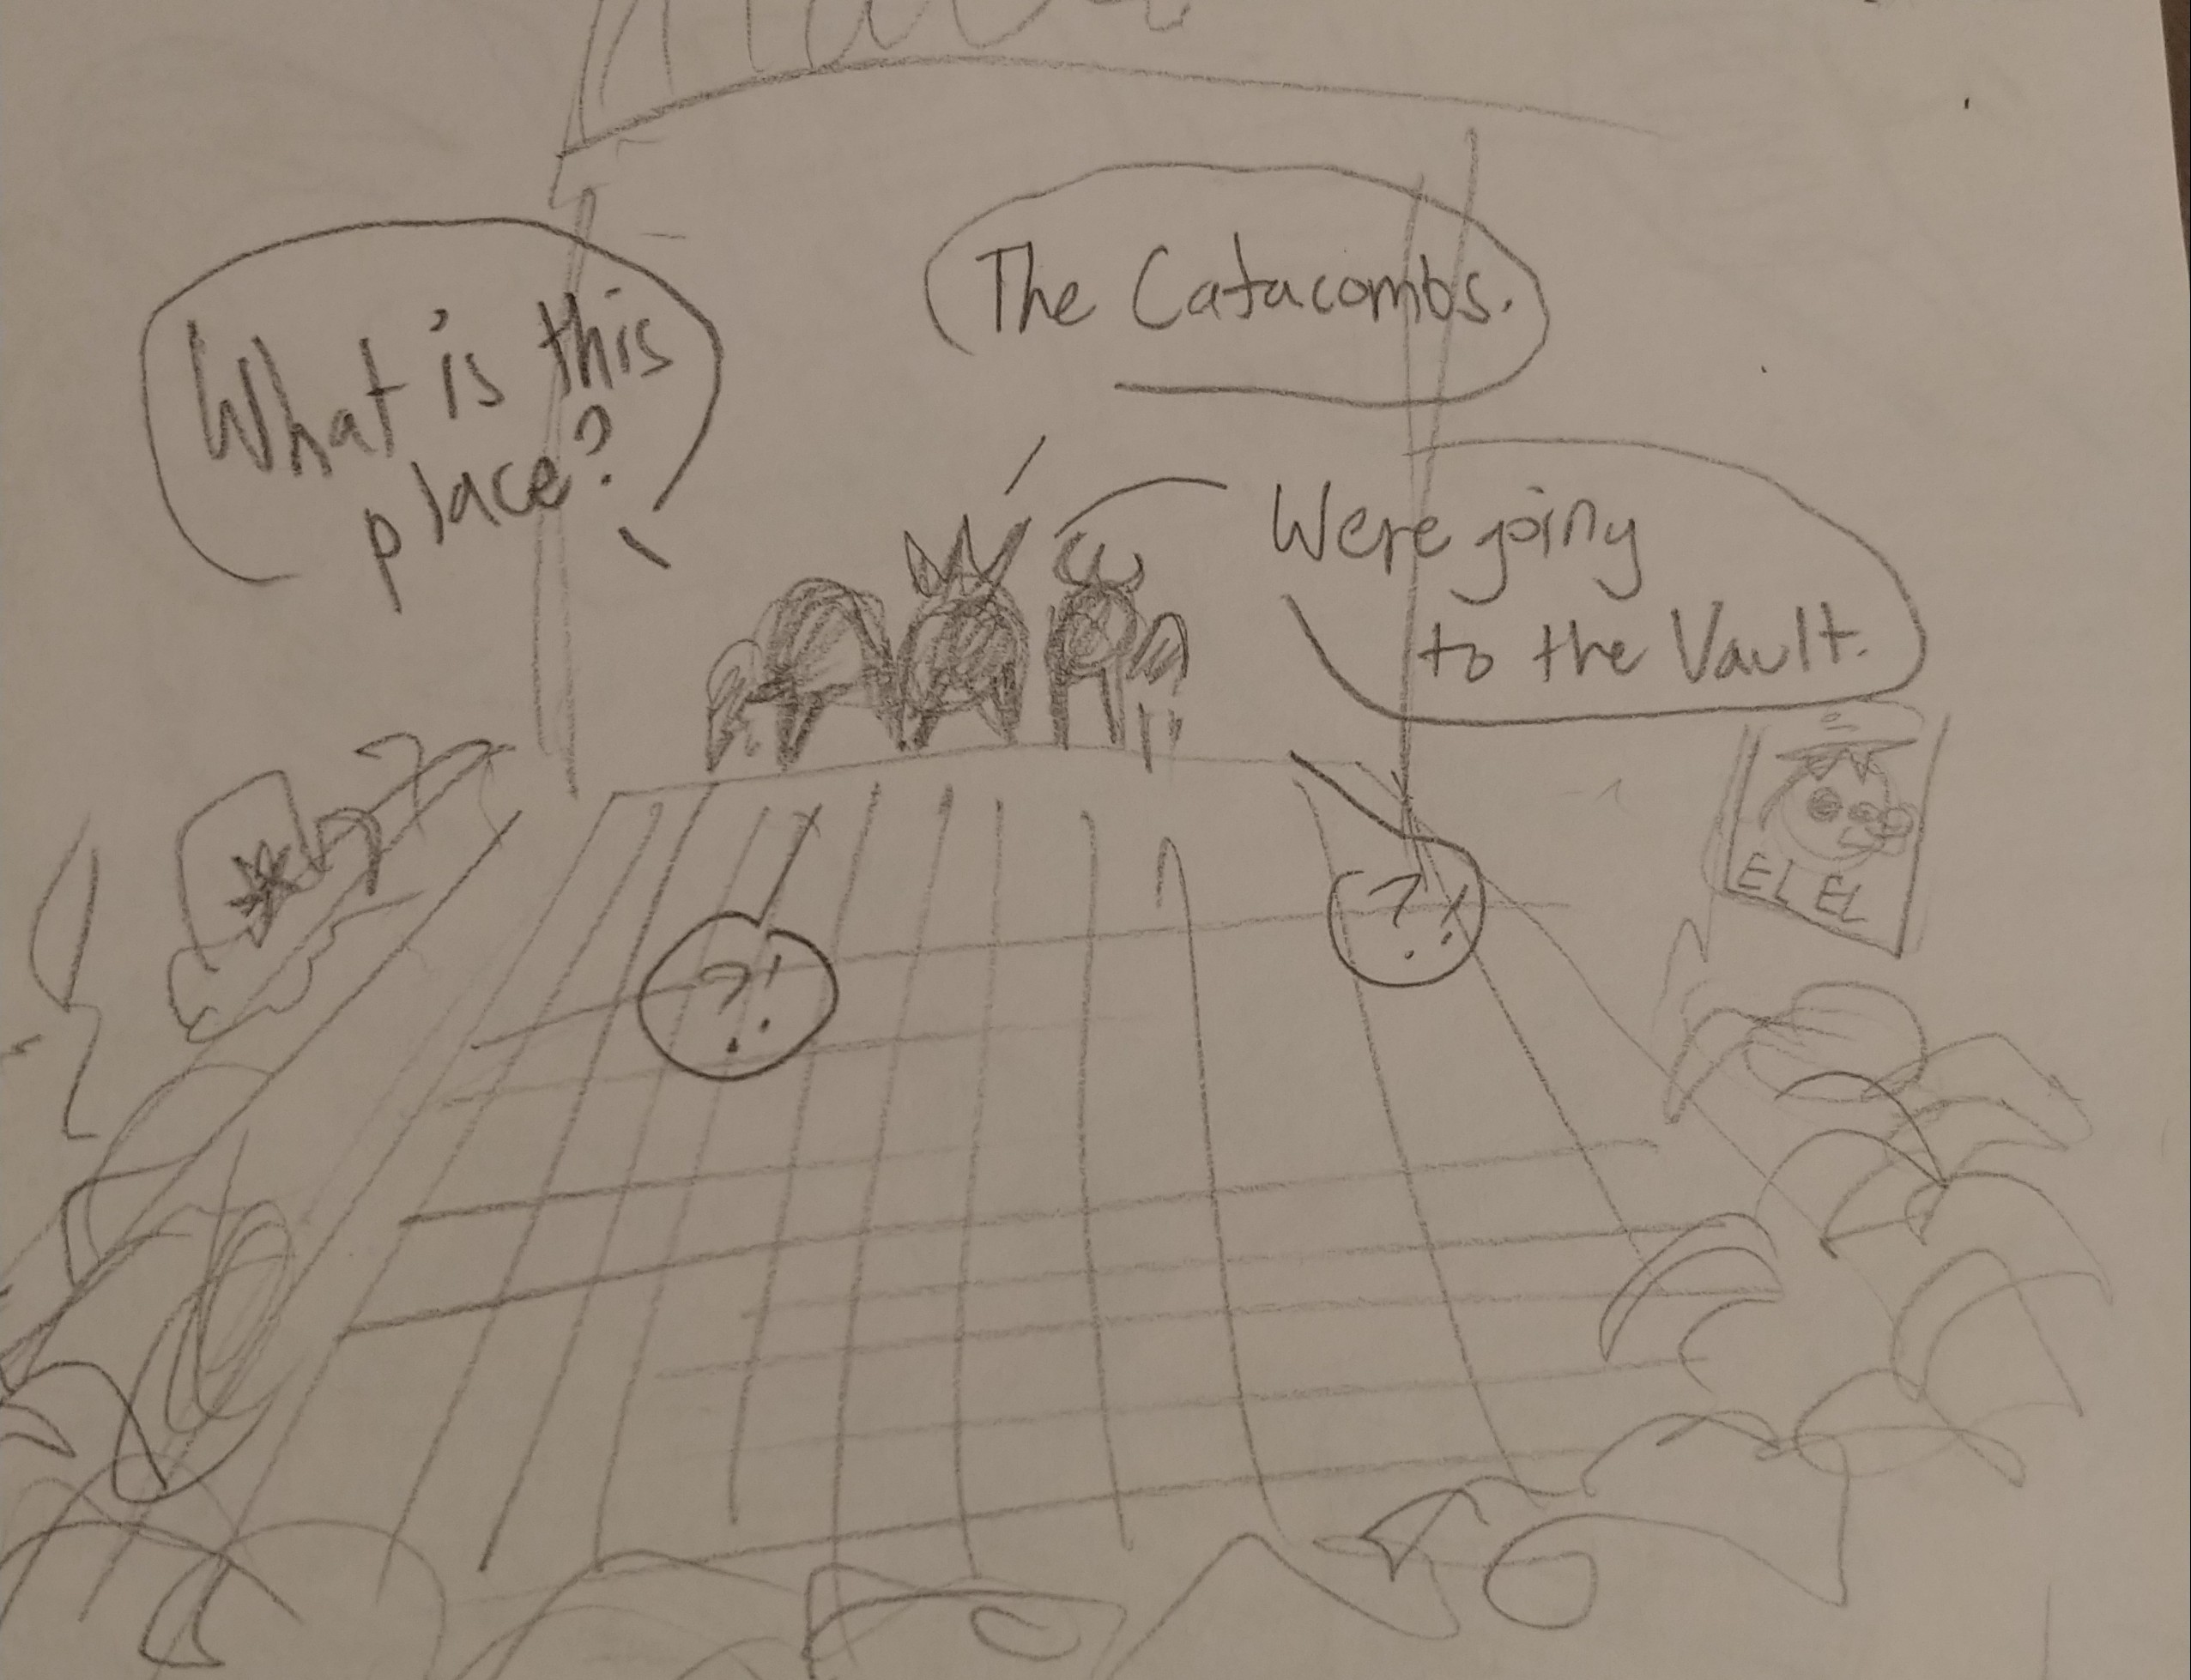 What is this
place?
The Catacombs.
Were going
to the Vault.
?!
?!
EL EL